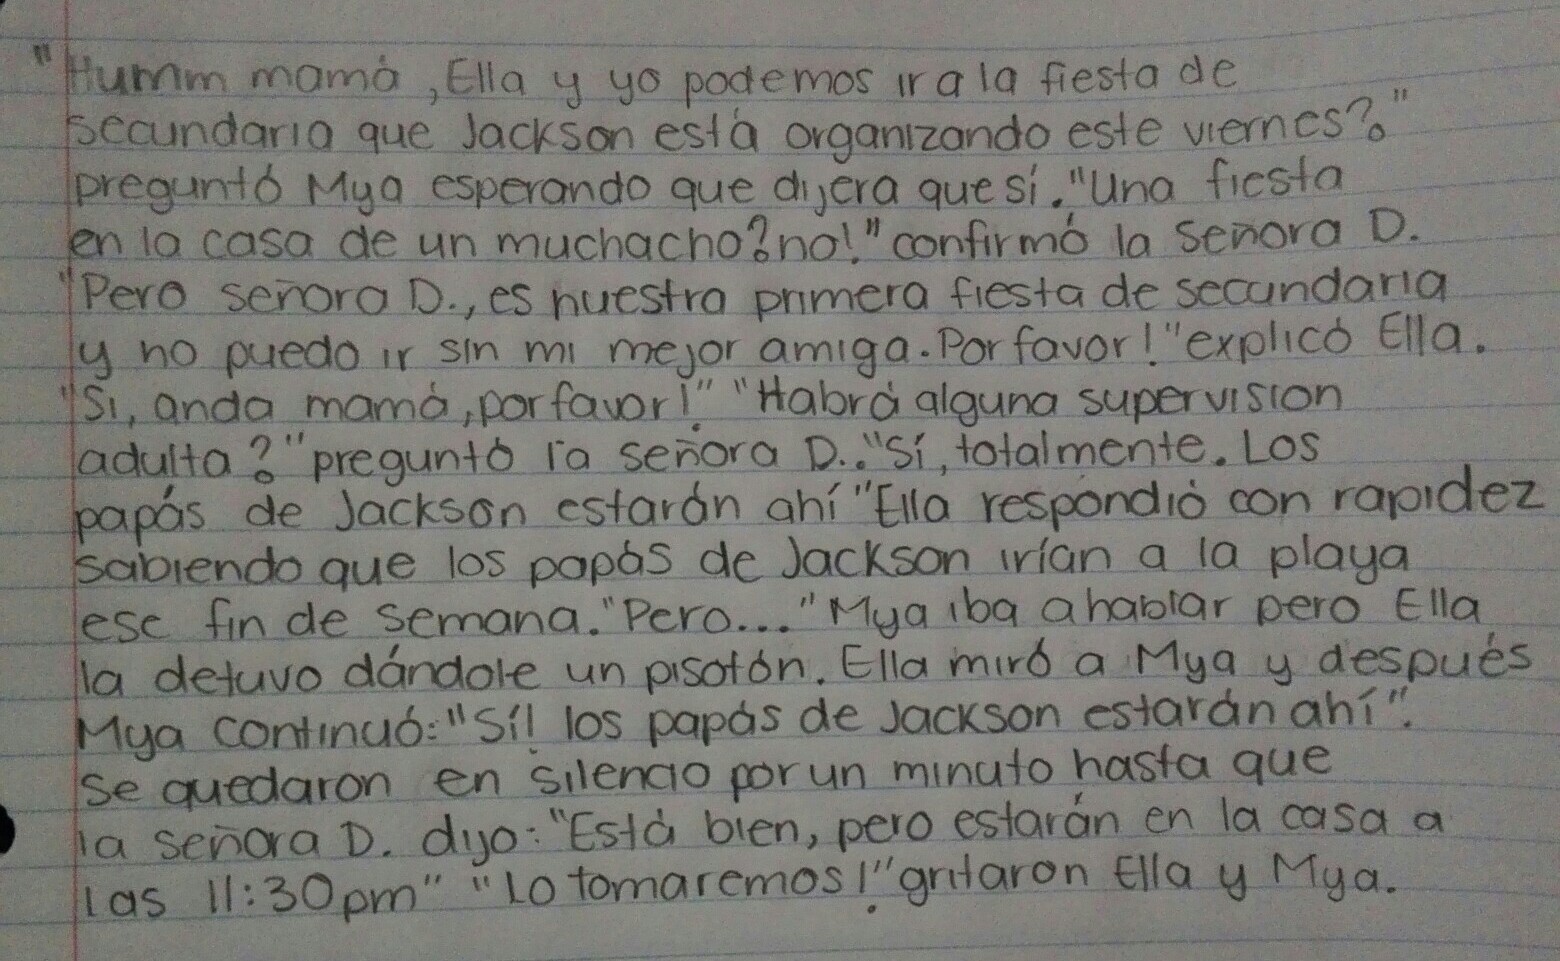 "Humm mamá, Ella y yo podemos ir a la fiesta de
secundaria que Jackson está organizando este viernes?"
preguntó Mya esperando que dijera que sí. "Una fiesta
en la casa de un muchacho? no!" confirmó la señora D.
"Pero señora D., es nuestra primera fiesta de secundaria
y no puedo ir sin mi mejor amiga. Por favor!" explicó Ella.
"Si, anda mamá, por favor!" "Habrá alguna supervision
adulta?" preguntó la señora D.. "Sí, totalmente. Los
papás de Jackson estarán ahí" Ella respondió con rapidez
sabiendo que los papás de Jackson irían a la playa
ese fin de semana. "Pero..." Mya iba a hablar pero Ella
la detuvo dándole un pisotón. Ella miró a Mya y después
Mya continuó: "Sí! los papás de Jackson estarán ahí".
Se quedaron en silencio por un minuto hasta que
la señora D. dijo: "Está bien, pero estarán en la casa a
las 11:30pm" "Lo tomaremos!" gritaron Ella y Mya.